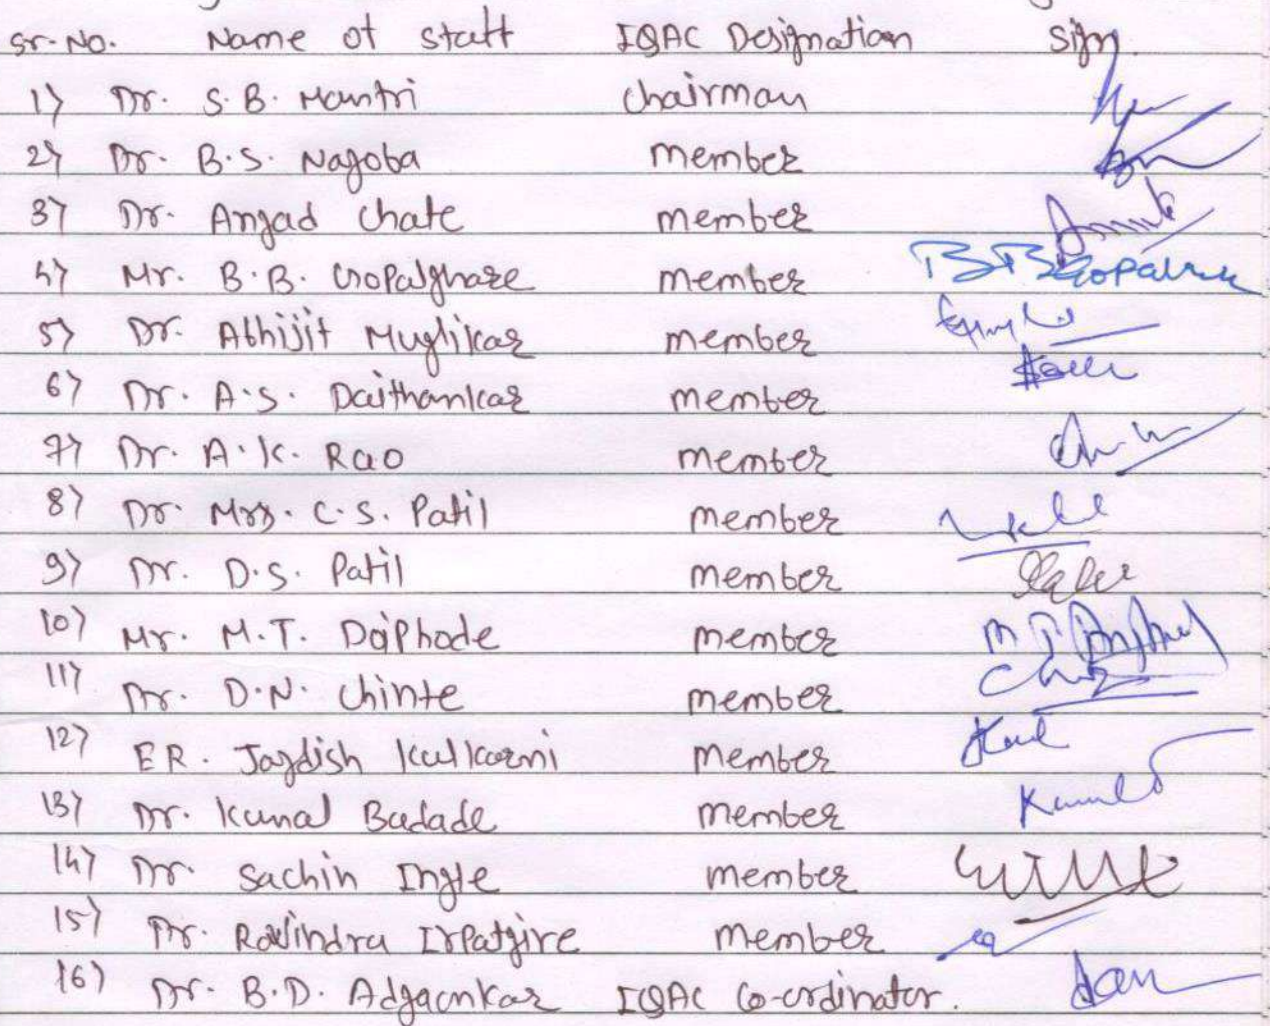 Sr. No. Name of staff IQAC Designation Sign.
1) Dr. S. B. Mantri Chairman
2) Dr. B. S. Nagoba member
3) Dr. Angad Chate member
4) Mr. B. B. Gopalghare member BBGopal
5) Dr. Abhijit Muglikar member
6) Dr. A. S. Daithankar member
7) Dr. A. K. Rao member
8) Dr. Mrs. C. S. Patil member
9) Dr. D. S. Patil member
10) Mr. M. T. Daphode member
11) Dr. D. N. Chinte member
12) ER. Jagdish Kulkarni member
13) Dr. Kunal Badade member
14) Dr. Sachin Ingle member
15) Dr. Ravindra Irpatgire member
16) Dr. B. D. Adgaonkar IQAC Co-ordinator.